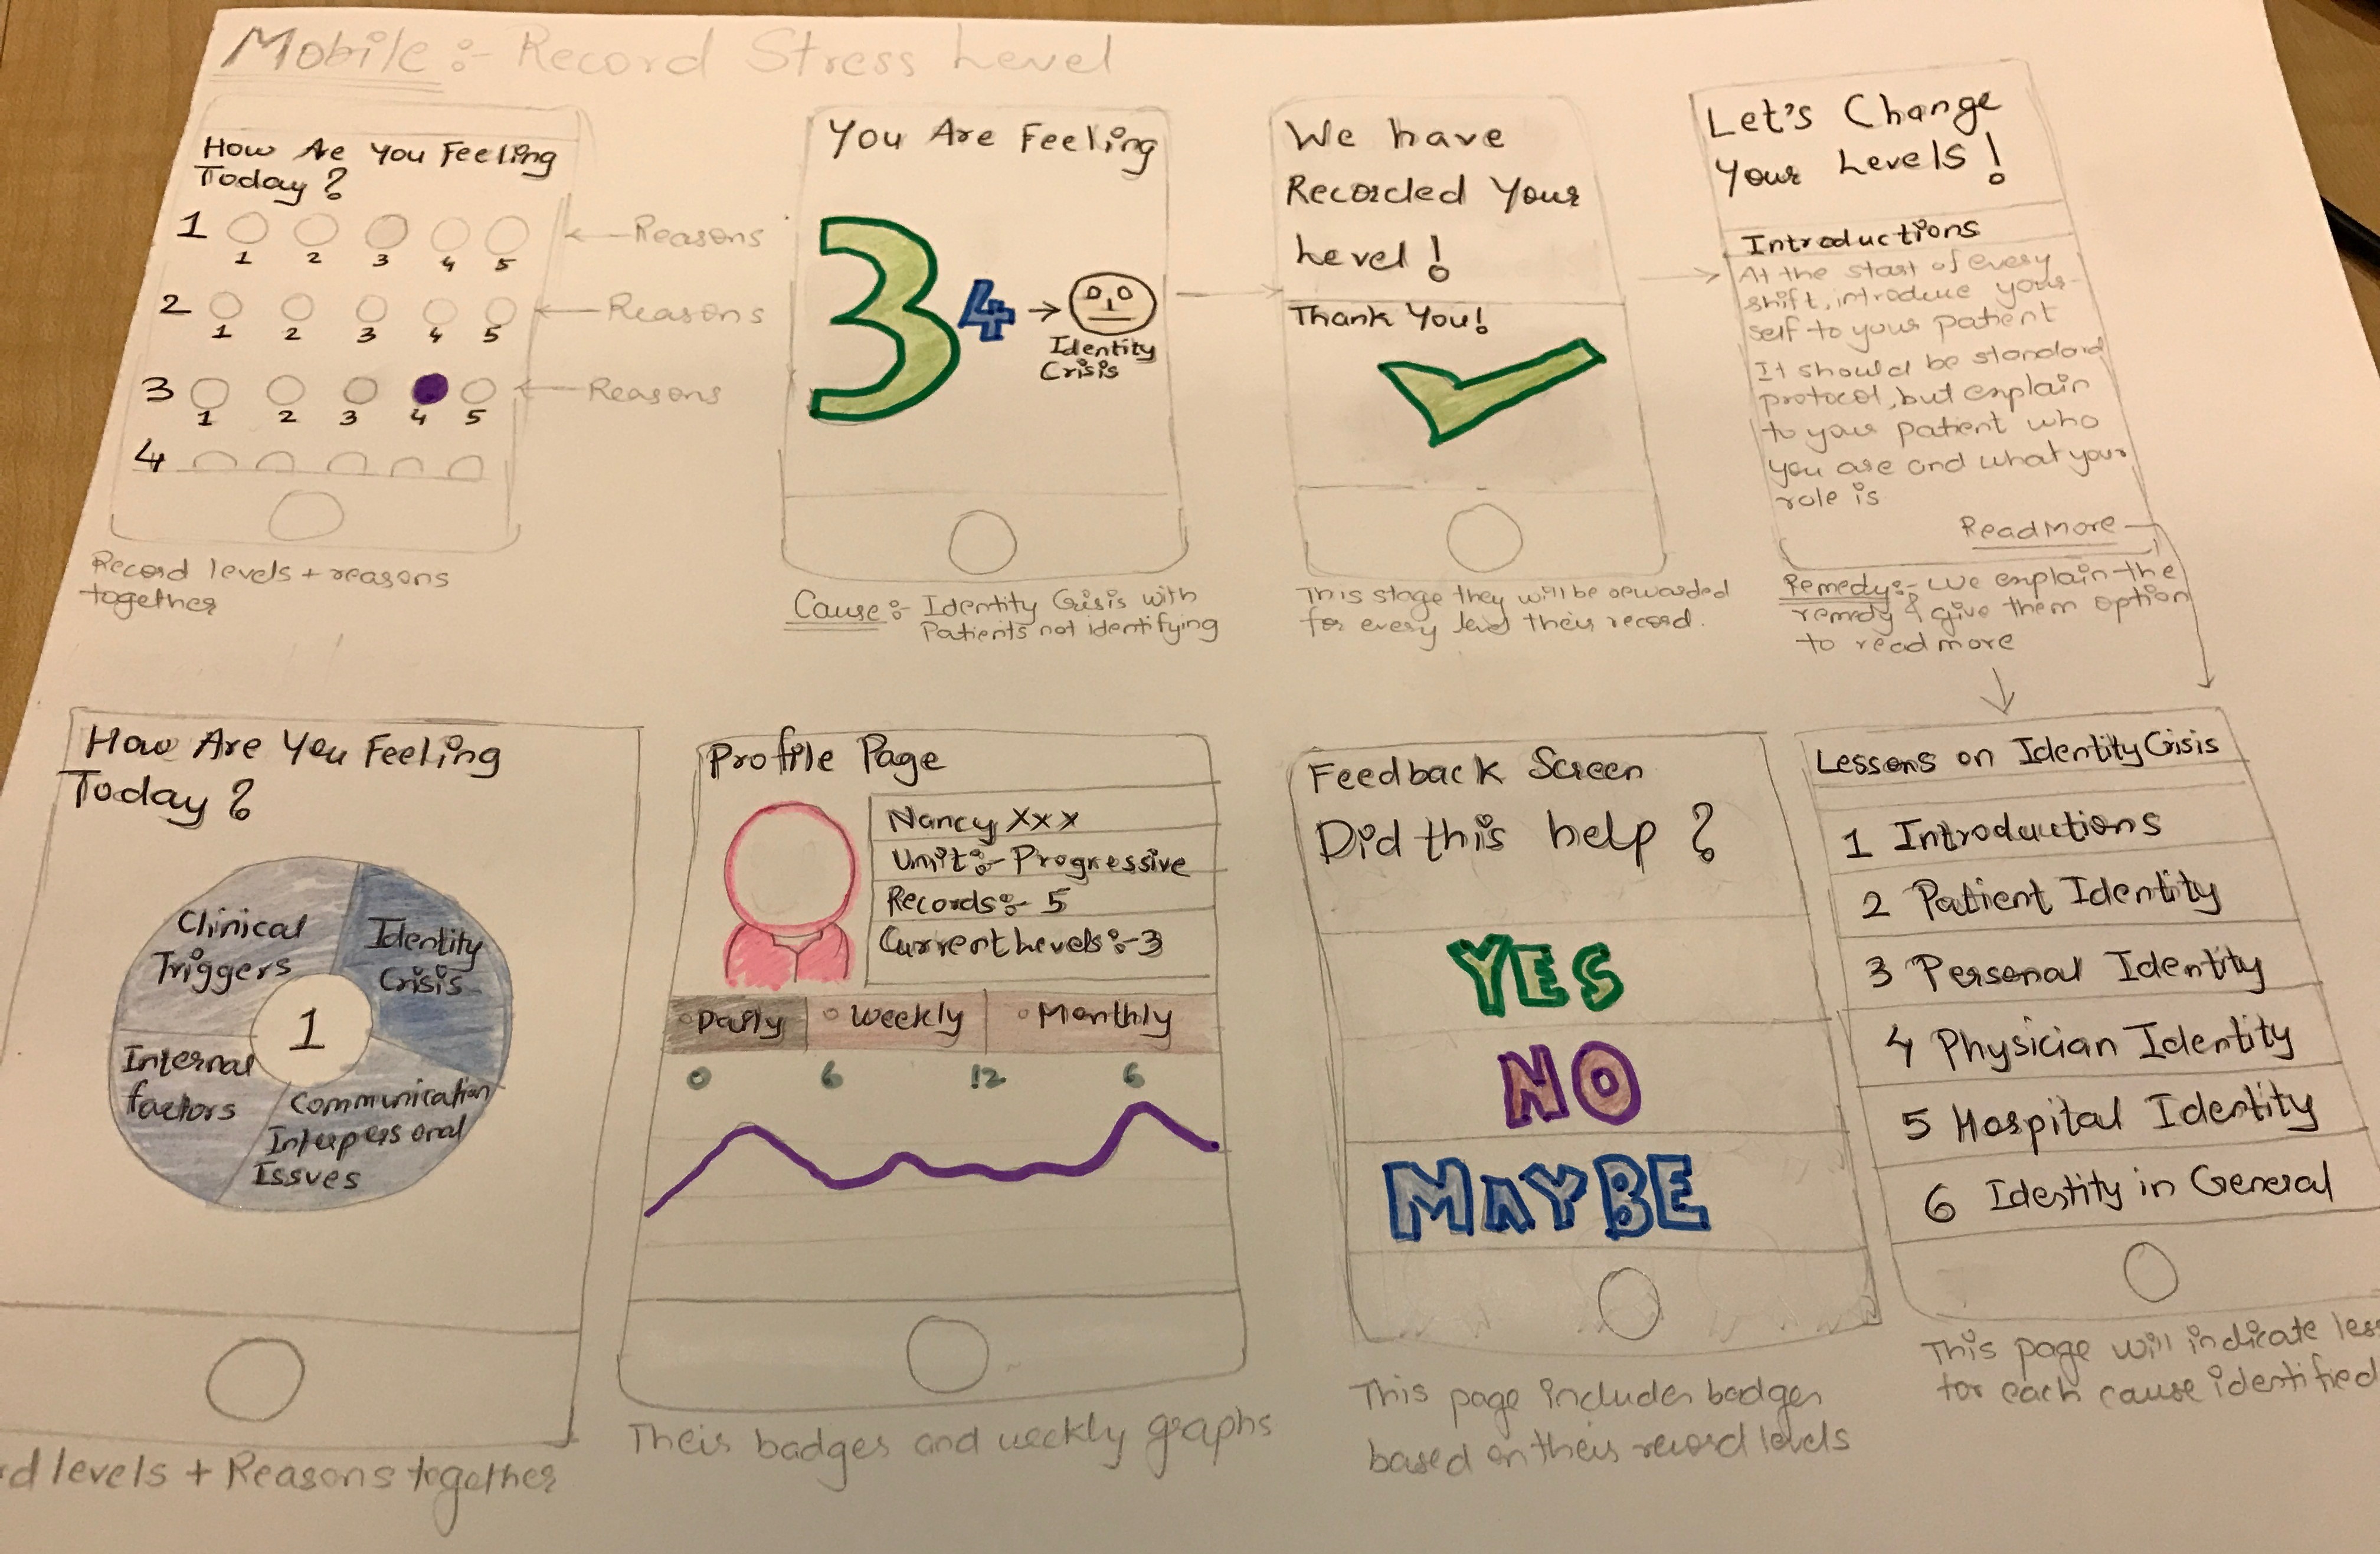 Mobile:- Record Stress Level
How Are You Feeling
Today?
1
1 2 3 4 5
← Reasons
2
1 2 3 4 5
← Reasons
3
1 2 3 4 5
← Reasons
4
Record levels + reasons
together
You Are Feeling
3 4 →
Identity
Crisis
Cause:- Identity Crisis with
Patients not identifying
We have
Recorded Your
Level!
Thank You!
This stage they will be rewarded
for every level their record.
Let's Change
Your Levels!
Introductions
At the start of every
shift, introduce your-
self to your patient
It should be standard
protocol, but explain
to your patient who
you are and what your
role is
Read More
Remedy:- We explain the
remedy & give them option
to read more
How Are You Feeling
Today?
Clinical
Triggers
Identity
Crisis
1
Internal
factors
Communication
Interpersonal
Issues
rd levels + Reasons together
Profile Page
Nancy Xxx
Unit:- Progressive
Records:- 5
Current Levels:- 3
Daily Weekly Monthly
0 6 12 6
Their badges and weekly graphs
Feedback Screen
Did this help?
YES
NO
MAYBE
This page includes badges
based on their record levels
Lessons on Identity Crisis
1 Introductions
2 Patient Identity
3 Personal Identity
4 Physician Identity
5 Hospital Identity
6 Identity in General
This page will indicate les
for each cause identified